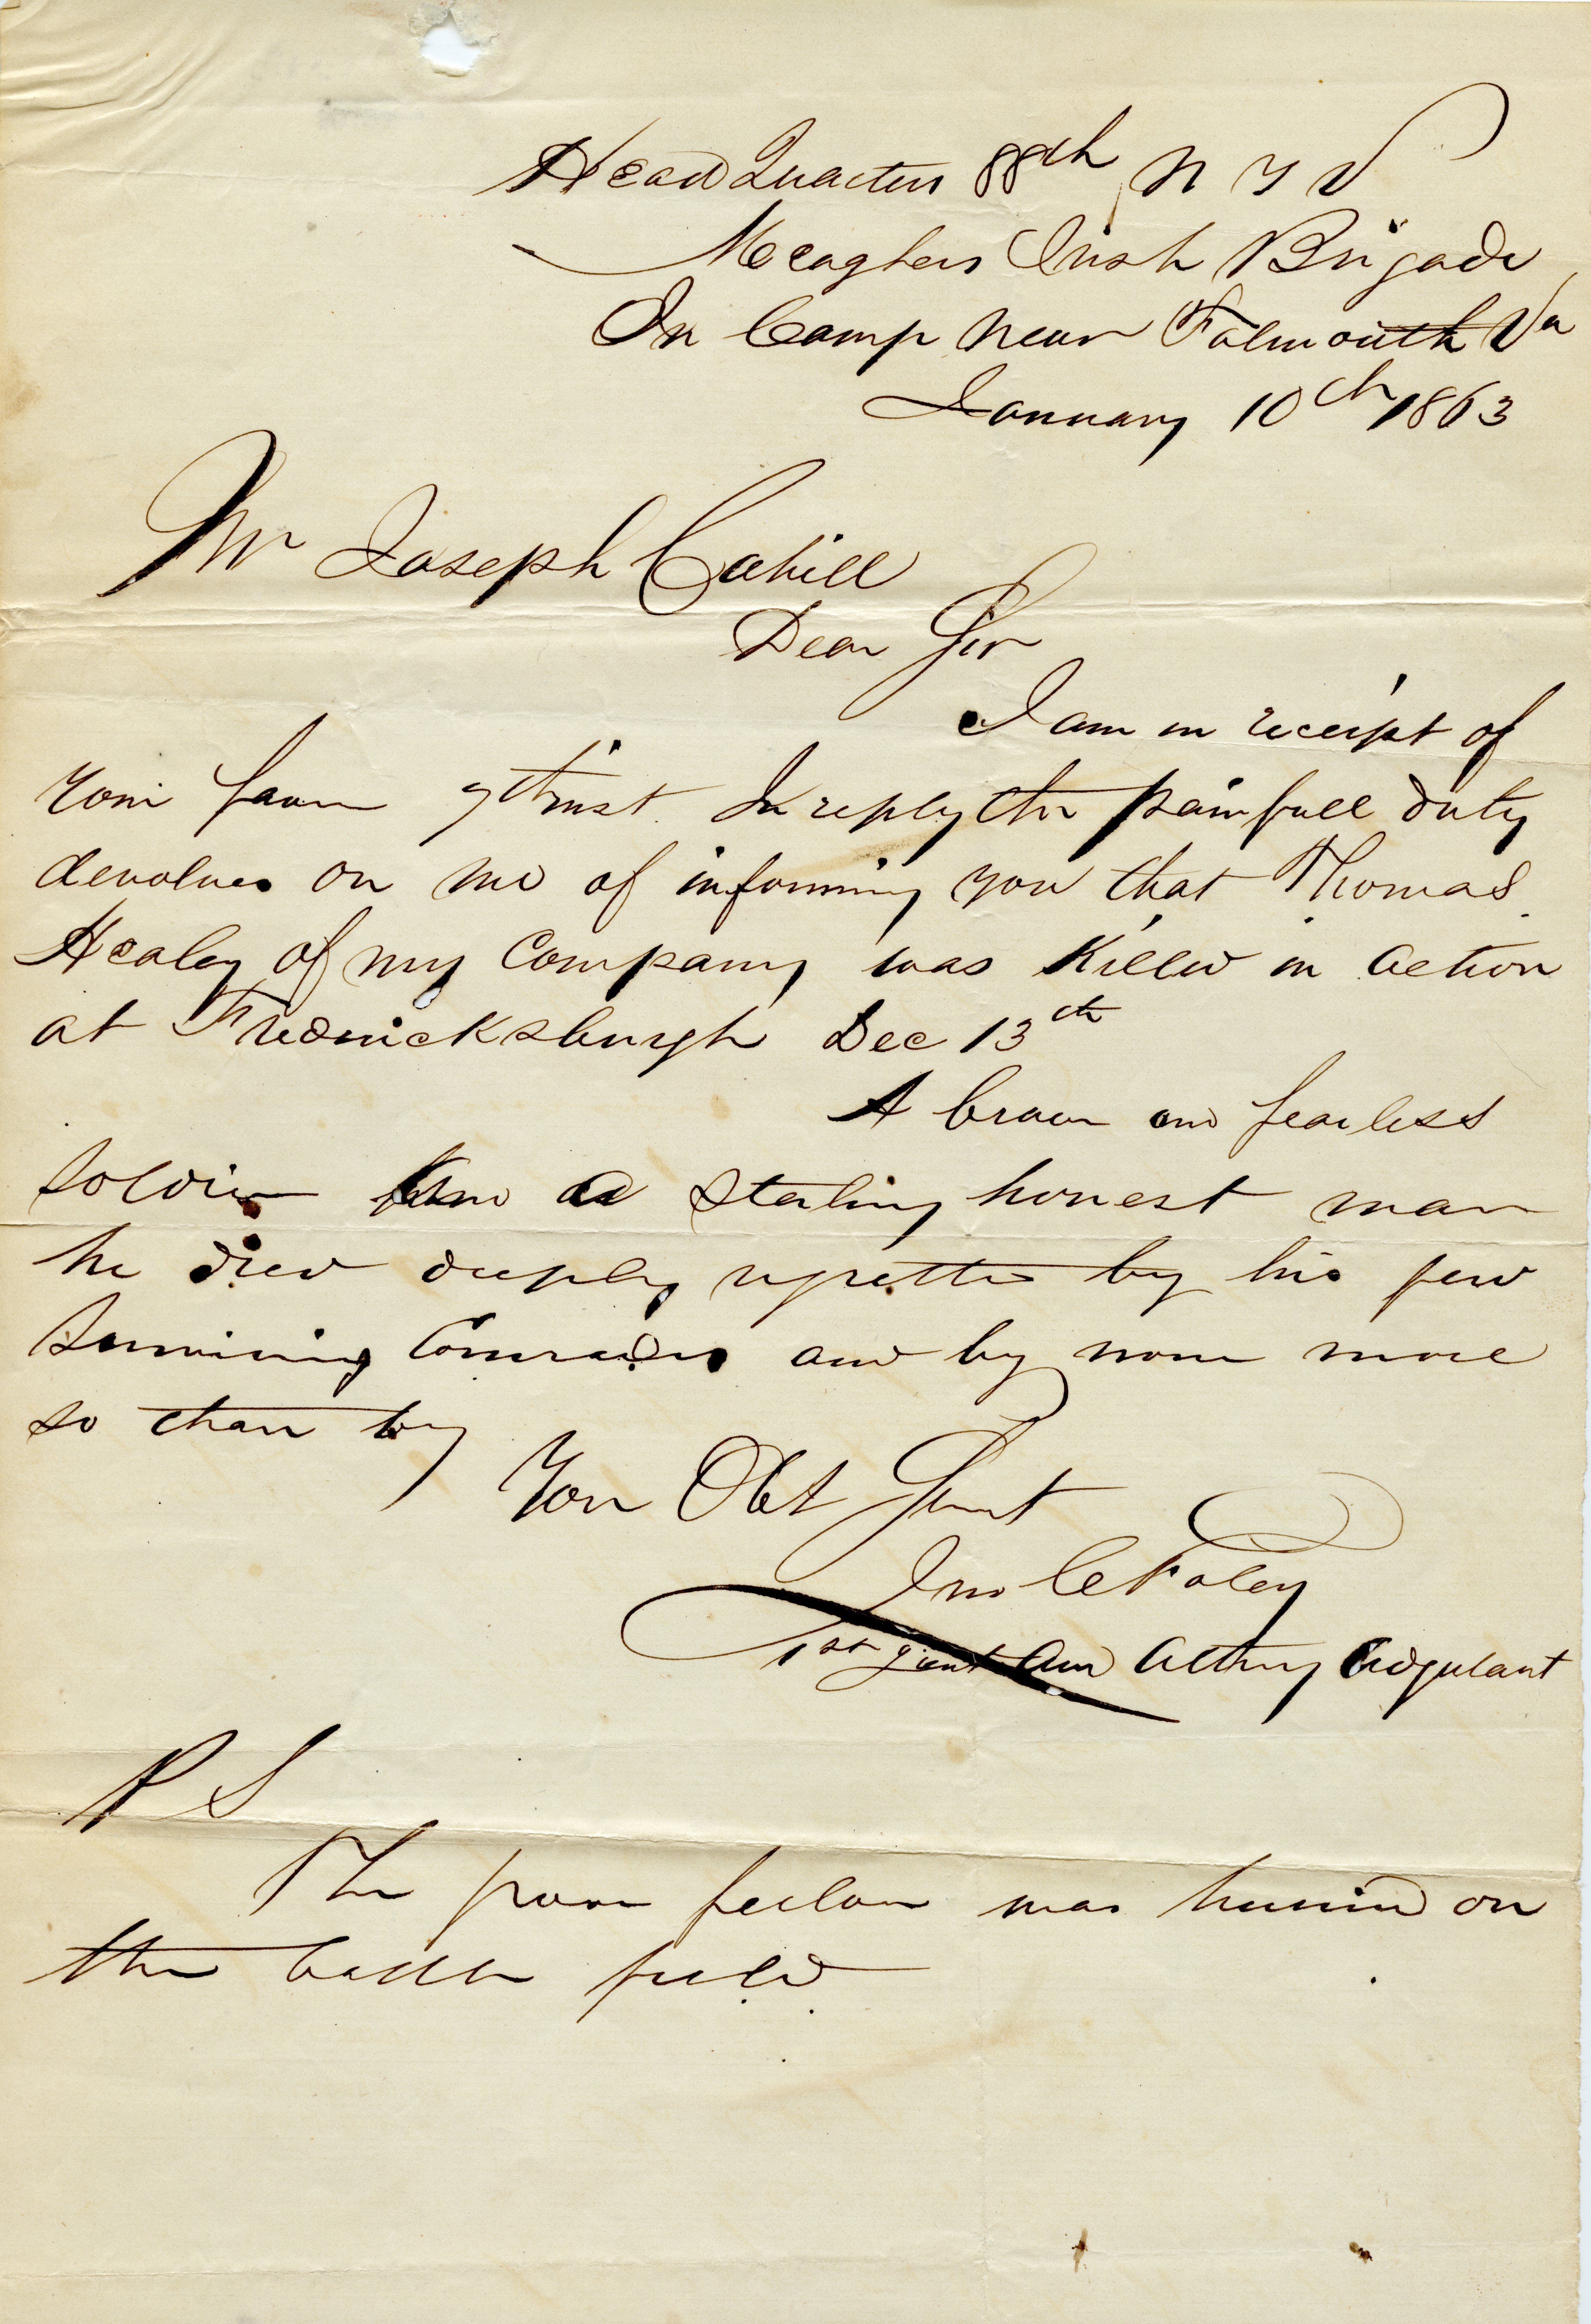 Head Quarters 88th N Y V
Meaghers Irish Brigade
In Camp near Falmouth Va
January 10th 1863
Mr Joseph Cahill
Dear Sir
I am in receipt of
your favor 7th inst. In reply the painfull duty
devolves on me of informing you that Thomas
Healey of my Company was Killed in action
at Fredricksburgh Dec 13th
A brave and fearless
soldier and a sterling honest man
he died deeply regretted by his few
surviving Comrades and by none more
so than by
Your Obt Servt
Jno C Foley
1st Lieut and Acting Adjutant
P S
The poor fellow was buried on
the battle field